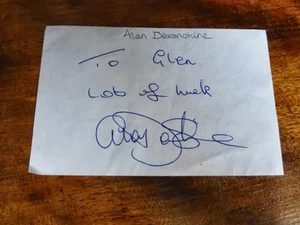 Alan Devonshire
To Glen
Lots of luck